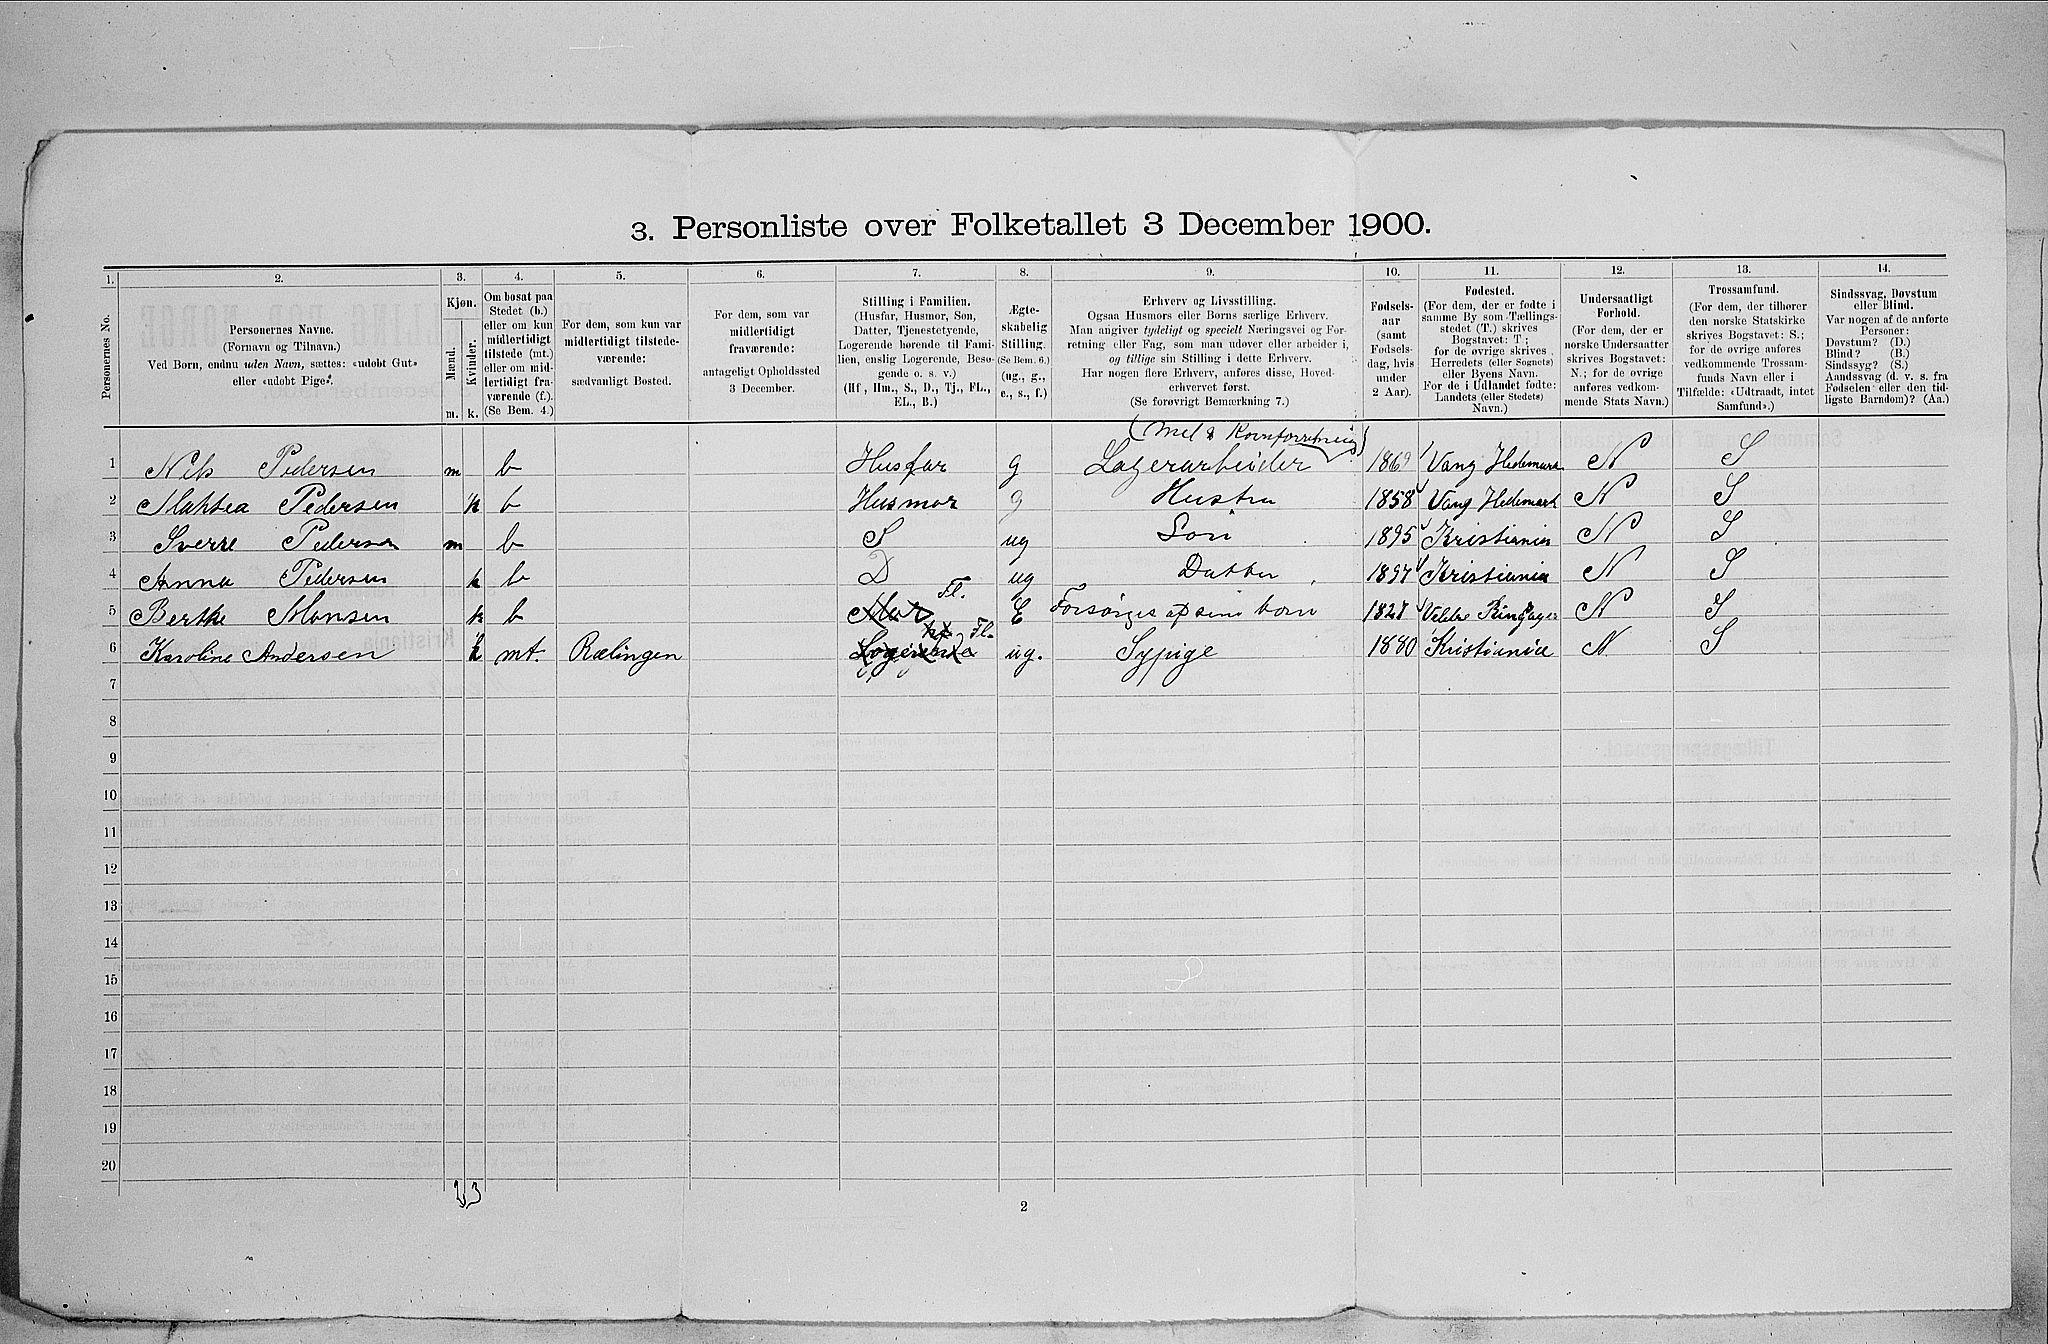 3. Personliste over Folketallet 3 December 1900.
1. 2. 3. 4. 5. 6. 7. 8. 9. 10. 11. 12. 13. 14.
Personernes No.
Personernes Navne.
(Fornavn og Tilnavn.)
Ved Børn, endnu uden Navn, sættes: «udøbt Gut»
eller «udøbt Pige».
Kjøn.
Mænd.
Kvinder.
m. k.
Om bosat paa
Stedet (b.)
eller om kun
midlertidigt
tilstede (mt.)
eller om mid-
lertidigt fra-
værende (f.).
(Se Bem. 4.)
For dem, som kun var
midlertidigt tilstede-
værende:
sædvanligt Bosted.
For dem, som var
midlertidigt
fraværende:
antageligt Opholdssted
3 December.
Stilling i Familien.
(Husfar, Husmor, Søn,
Datter, Tjenestetyende,
Logerende hørende til Fami-
lien, enslig Logerende, Besø-
gende o. s. v.)
(Hf, Hm., S., D., Tj., FL.,
EL., B.)
Ægte-
skabelig
Stilling.
(Se Bem. 6.)
(ug., g.,
e., s., f.)
Erhverv og Livsstilling.
Ogsaa Husmors eller Børns særlige Erhverv.
Man angiver tydeligt og specielt Næringsvei og For-
retning eller Fag, som man udøver eller arbeider i,
og tillige sin Stilling i dette Erhverv.
Har nogen flere Erhverv, anføres disse, Hoved-
erhvervet først.
(Se forøvrigt Bemærkning 7.)
Fødsels-
aar
(samt
Fødsels-
dag, hvis
under
2 Aar).
Fødested.
(For dem, der er fødte i
samme By som Tællings-
stedet (T.) skrives
Bogstavet: T;
for de øvrige skrives
Herredets (eller Sognets)
eller Byens Navn.
For de i Udlandet fødte:
Landets (eller Stedets)
Navn.)
Undersaatligt
Forhold.
(For dem, der er
norske Undersaatter
skrives Bogstavet:
N.; for de øvrige
anføres vedkom-
mende Stats Navn.)
Trossamfund.
(For dem, der tilhører
den norske Statskirke
skrives Bogstavet: S.;
for de øvrige anføres
vedkommende Trossam-
funds Navn eller i
Tilfælde: «Udtraadt, intet
Samfund».)
Sindssvag, Døvstum
eller Blind.
Var nogen af de anførte
Personer:
Døvstum? (D.)
Blind? (B.)
Sindssyg? (S.)
Aandssvag (d. v. s. fra
Fødselen eller den tid-
ligste Barndom)? (Aa.)
(Mel & Kornforretning)
1 Nils Pedersen m b Husfar g Lagerarbeider Vang Hedemark N S
2 Mathea Pedersen k b Husmor g Hustru 1858 Vang Hedemark N S
3 Sverre Pedersen m b S ug Søn 1895 Kristiania N S
4 Anna Pedersen k b D ug Datter 1897 Kristiania N S
5 Berthe Monsen k b Mor Fl. E Forsørges af sine børn Ringsager N S
6 Karoline Andersen k mt. Rælingen Logerende Fl. ug. Sypige 1880 Kristiania N S
7
8
9
10
11
12
13
14
15
16
17
18
19
20
2 3
2